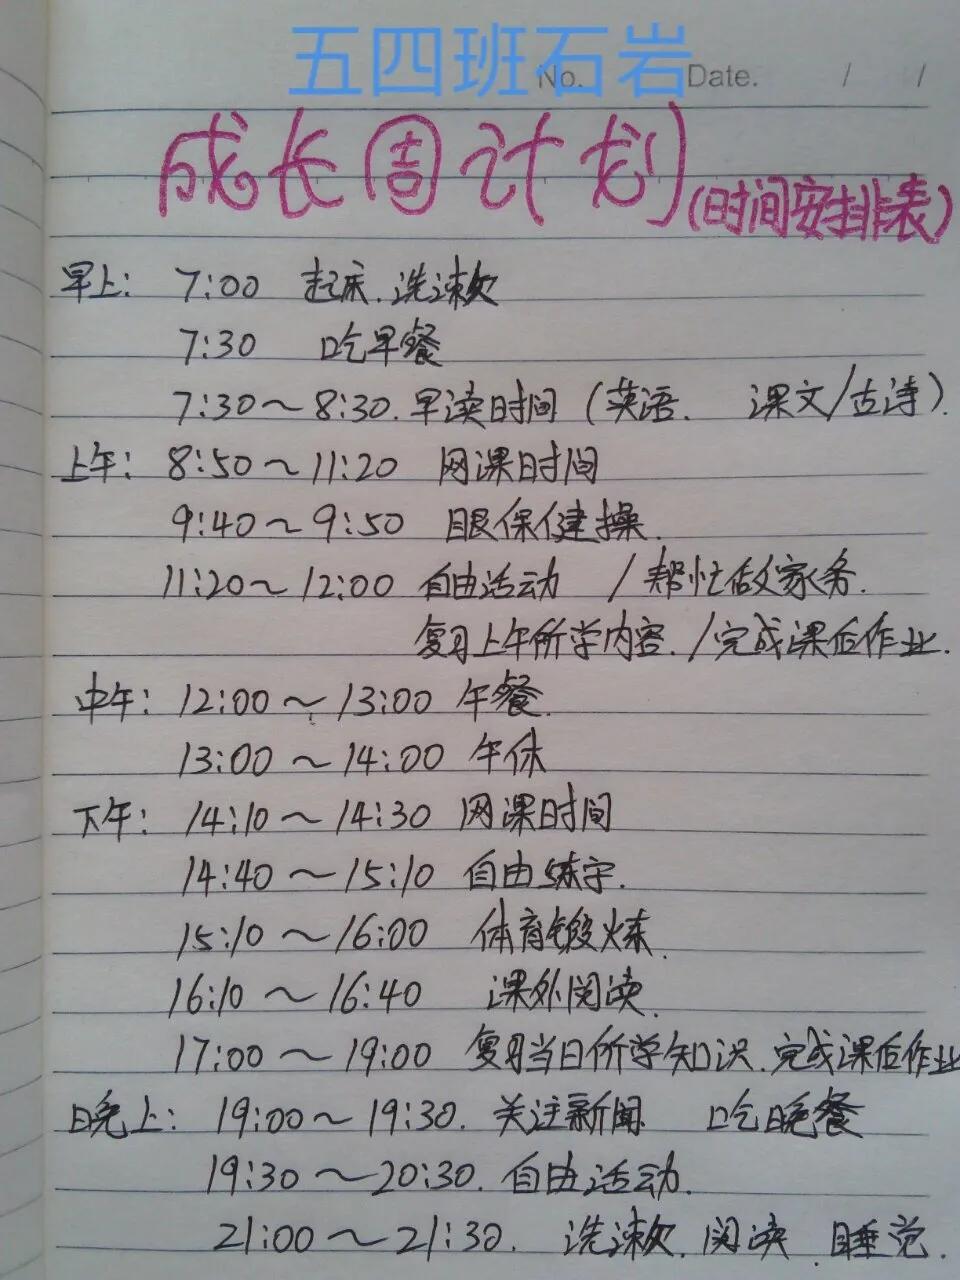 五四班石岩
No. Date. / /
成长周计划(时间安排表)
早上: 7:00 起床.洗漱
7:30 吃早餐
7:30～8:30.早读时间(英语. 课文/古诗).
上午: 8:50～11:20 网课时间
9:40～9:50 眼保健操.
11:20～12:00 自由活动 /帮忙做家务.
复习上午所学内容./完成课后作业.
中午: 12:00～13:00 午餐.
13:00～14:00 午休
下午: 14:10～14:30 网课时间
14:40～15:10 自由练字.
15:10～16:00 体育锻炼.
16:10～16:40 课外阅读.
17:00～19:00 复习当日所学知识.完成课后作业
晚上: 19:00～19:30. 关注新闻 吃晚餐
19:30～20:30. 自由活动.
21:00～21:30. 洗漱.阅读 睡觉.